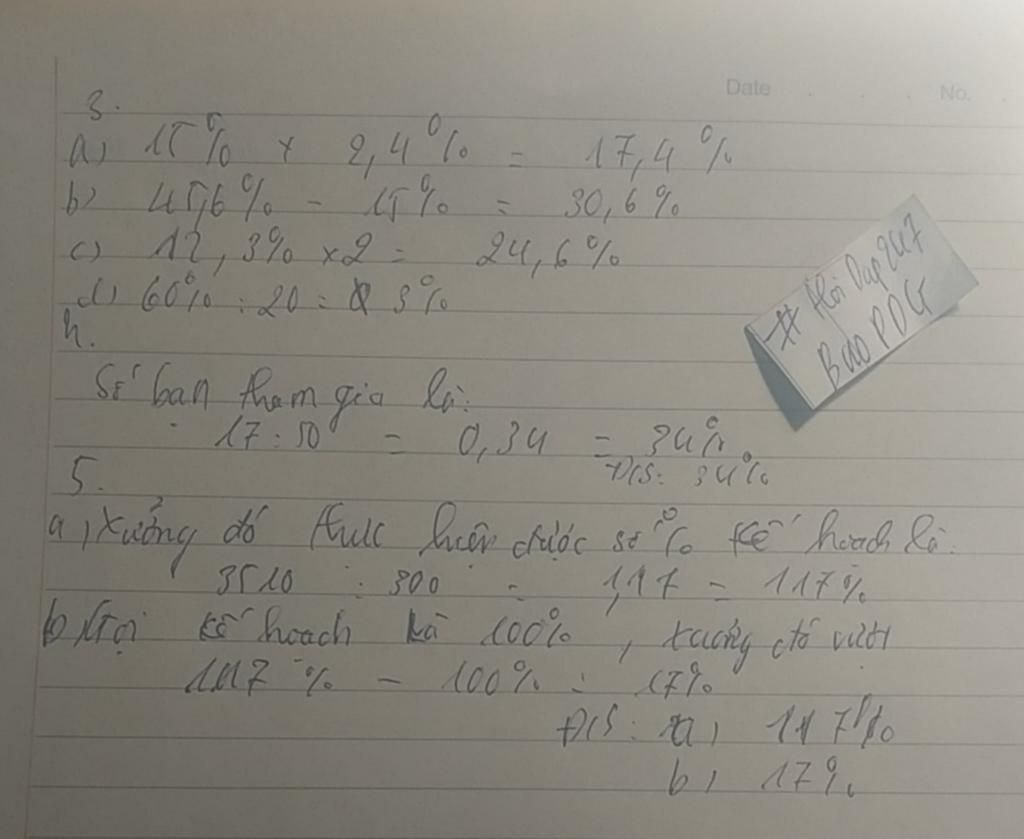 Date No.
3.
a) 15% + 2,4% = 17,4%
b) 45,6% - 15% = 30,6%
c) 12,3% x 2 = 24,6%
d) 60% : 20 = 3%
4.
Số bạn tham gia là:
17 : 50 = 0,34 = 34%.
Đ/S: 34%
5.
a, Xưởng đó thực hiện được số % kế hoạch là:
3510 : 300 = 1,17 = 117%
b, Gọi kế hoạch là 100%, xưởng đó vượt
117% - 100% = 17%
Đ/S: a, 117%
b, 17%
# Hỏi Đáp 247
Bao PDG